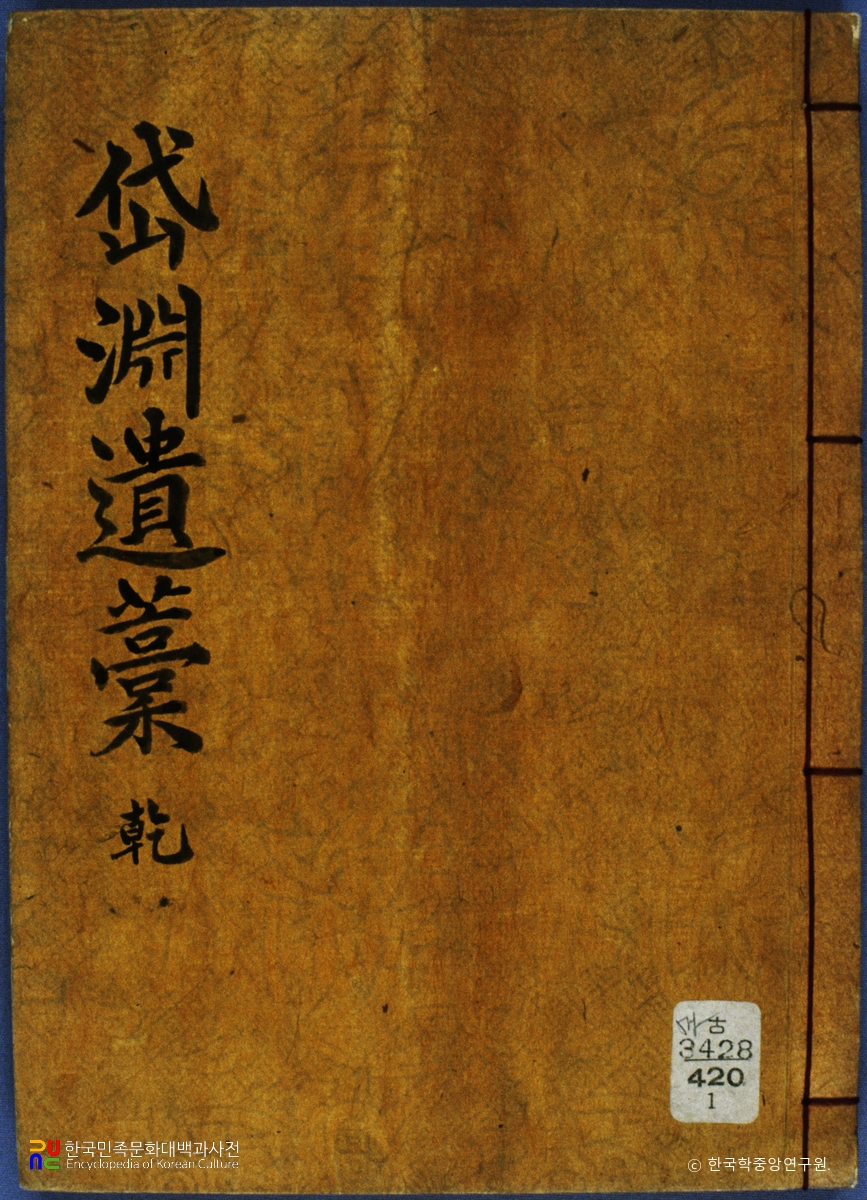 岱淵遺藁
乾
古
3428
420
1
한국민족문화대백과사전
Encyclopedia of Korean Culture
ⓒ 한국학중앙연구원.